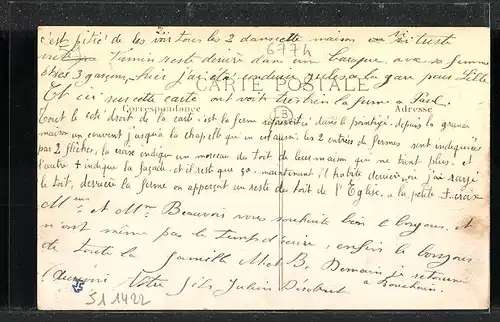 c'est pitié de les voir tous les 2 dans cette maison si triste
reste derrière dans un baraque avec sa femme
et ses 3 garçons, puis j'ai été conduire Gisèle à la gare pour Lille
6774
CARTE POSTALE
Et ici sur cette carte ont voit très bien la ferme à Paul
Correspondance
Adresse
Tout le côté droit de la carte c'est la ferme dans le pointillé depuis la grande
maison un couvent jusqu'à la chapelle qui en est aussi : les 2 entrées de fermes sont indiquées
par 2 flèches, la croix indique un morceau du toit de leur maison qui ne tient plus, et
l'autre + indique la façade, et il reste que ça. maintenant il habite derrière, où j'ai rasé
le toit, derrière la ferme on apperçoit un reste du toit de l'Eglise, a la petite + croix
Mme et Mr Beauvois vous souhaite bien le bonjour, et
n'ont même pas le temps d'écrire, enfin le bonjour
de toute la famille M et B. Demain je retourne
à
Aurevoir Votre fils Julien
S1 1422